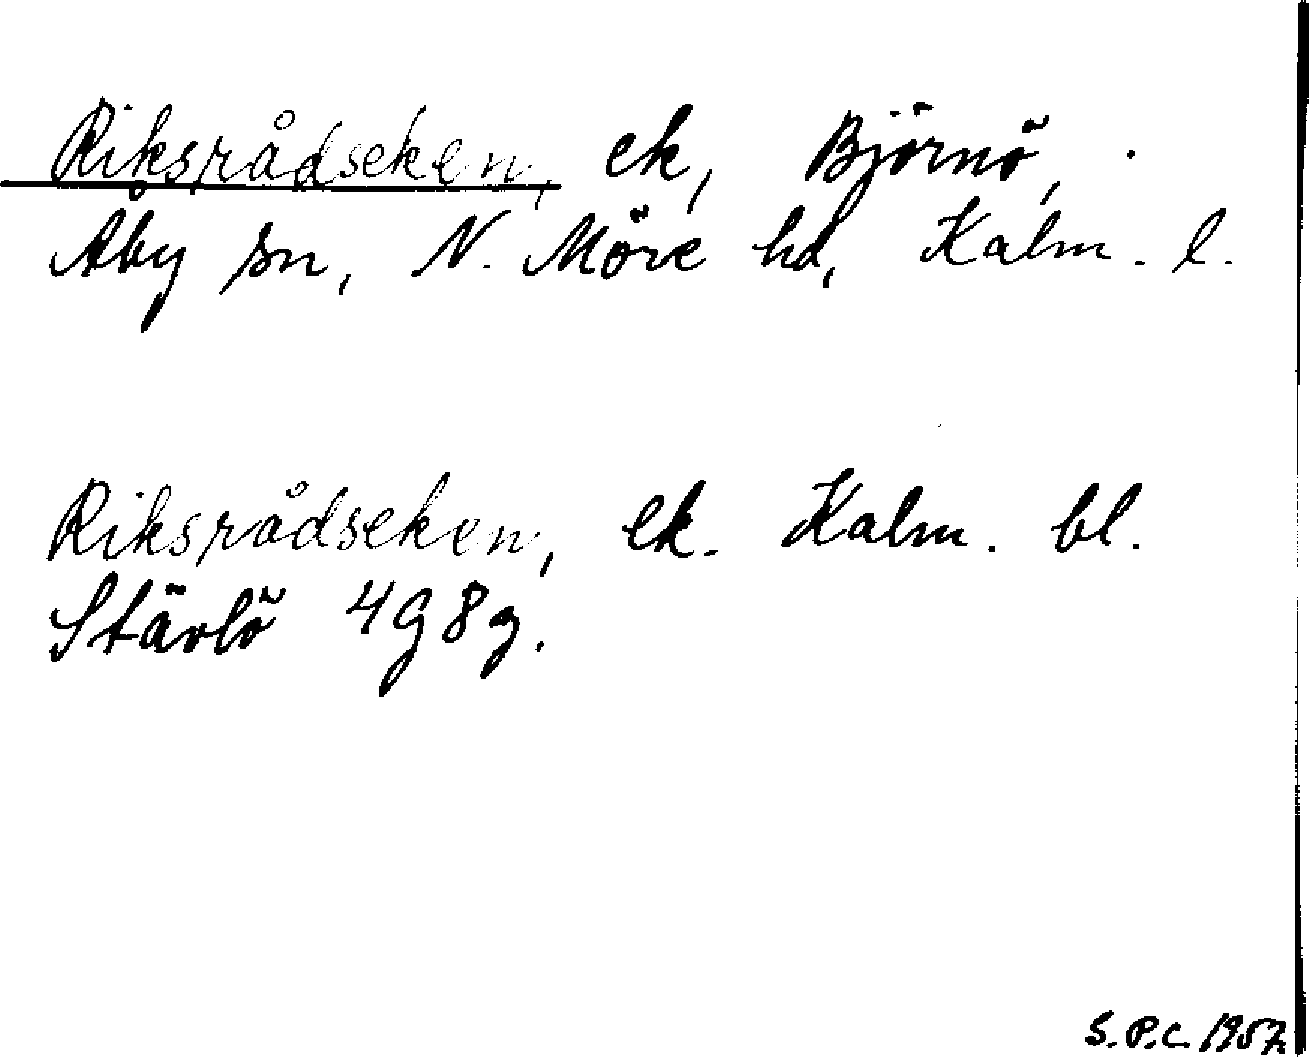 Riksrådseken, ek, Björnö,
Åby sn, N. Möre hd, Kalm. l.
Riksrådseken, ek. Kalm. bl.
Stävlö 4G8g.
S.P.C. 1957.